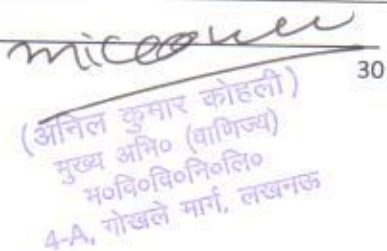 30
(अनिल कुमार कोहली)
मुख्य अभि० (वाणिज्य)
म०वि०वि०नि०लि०
4-A, गोखले मार्ग, लखनऊ